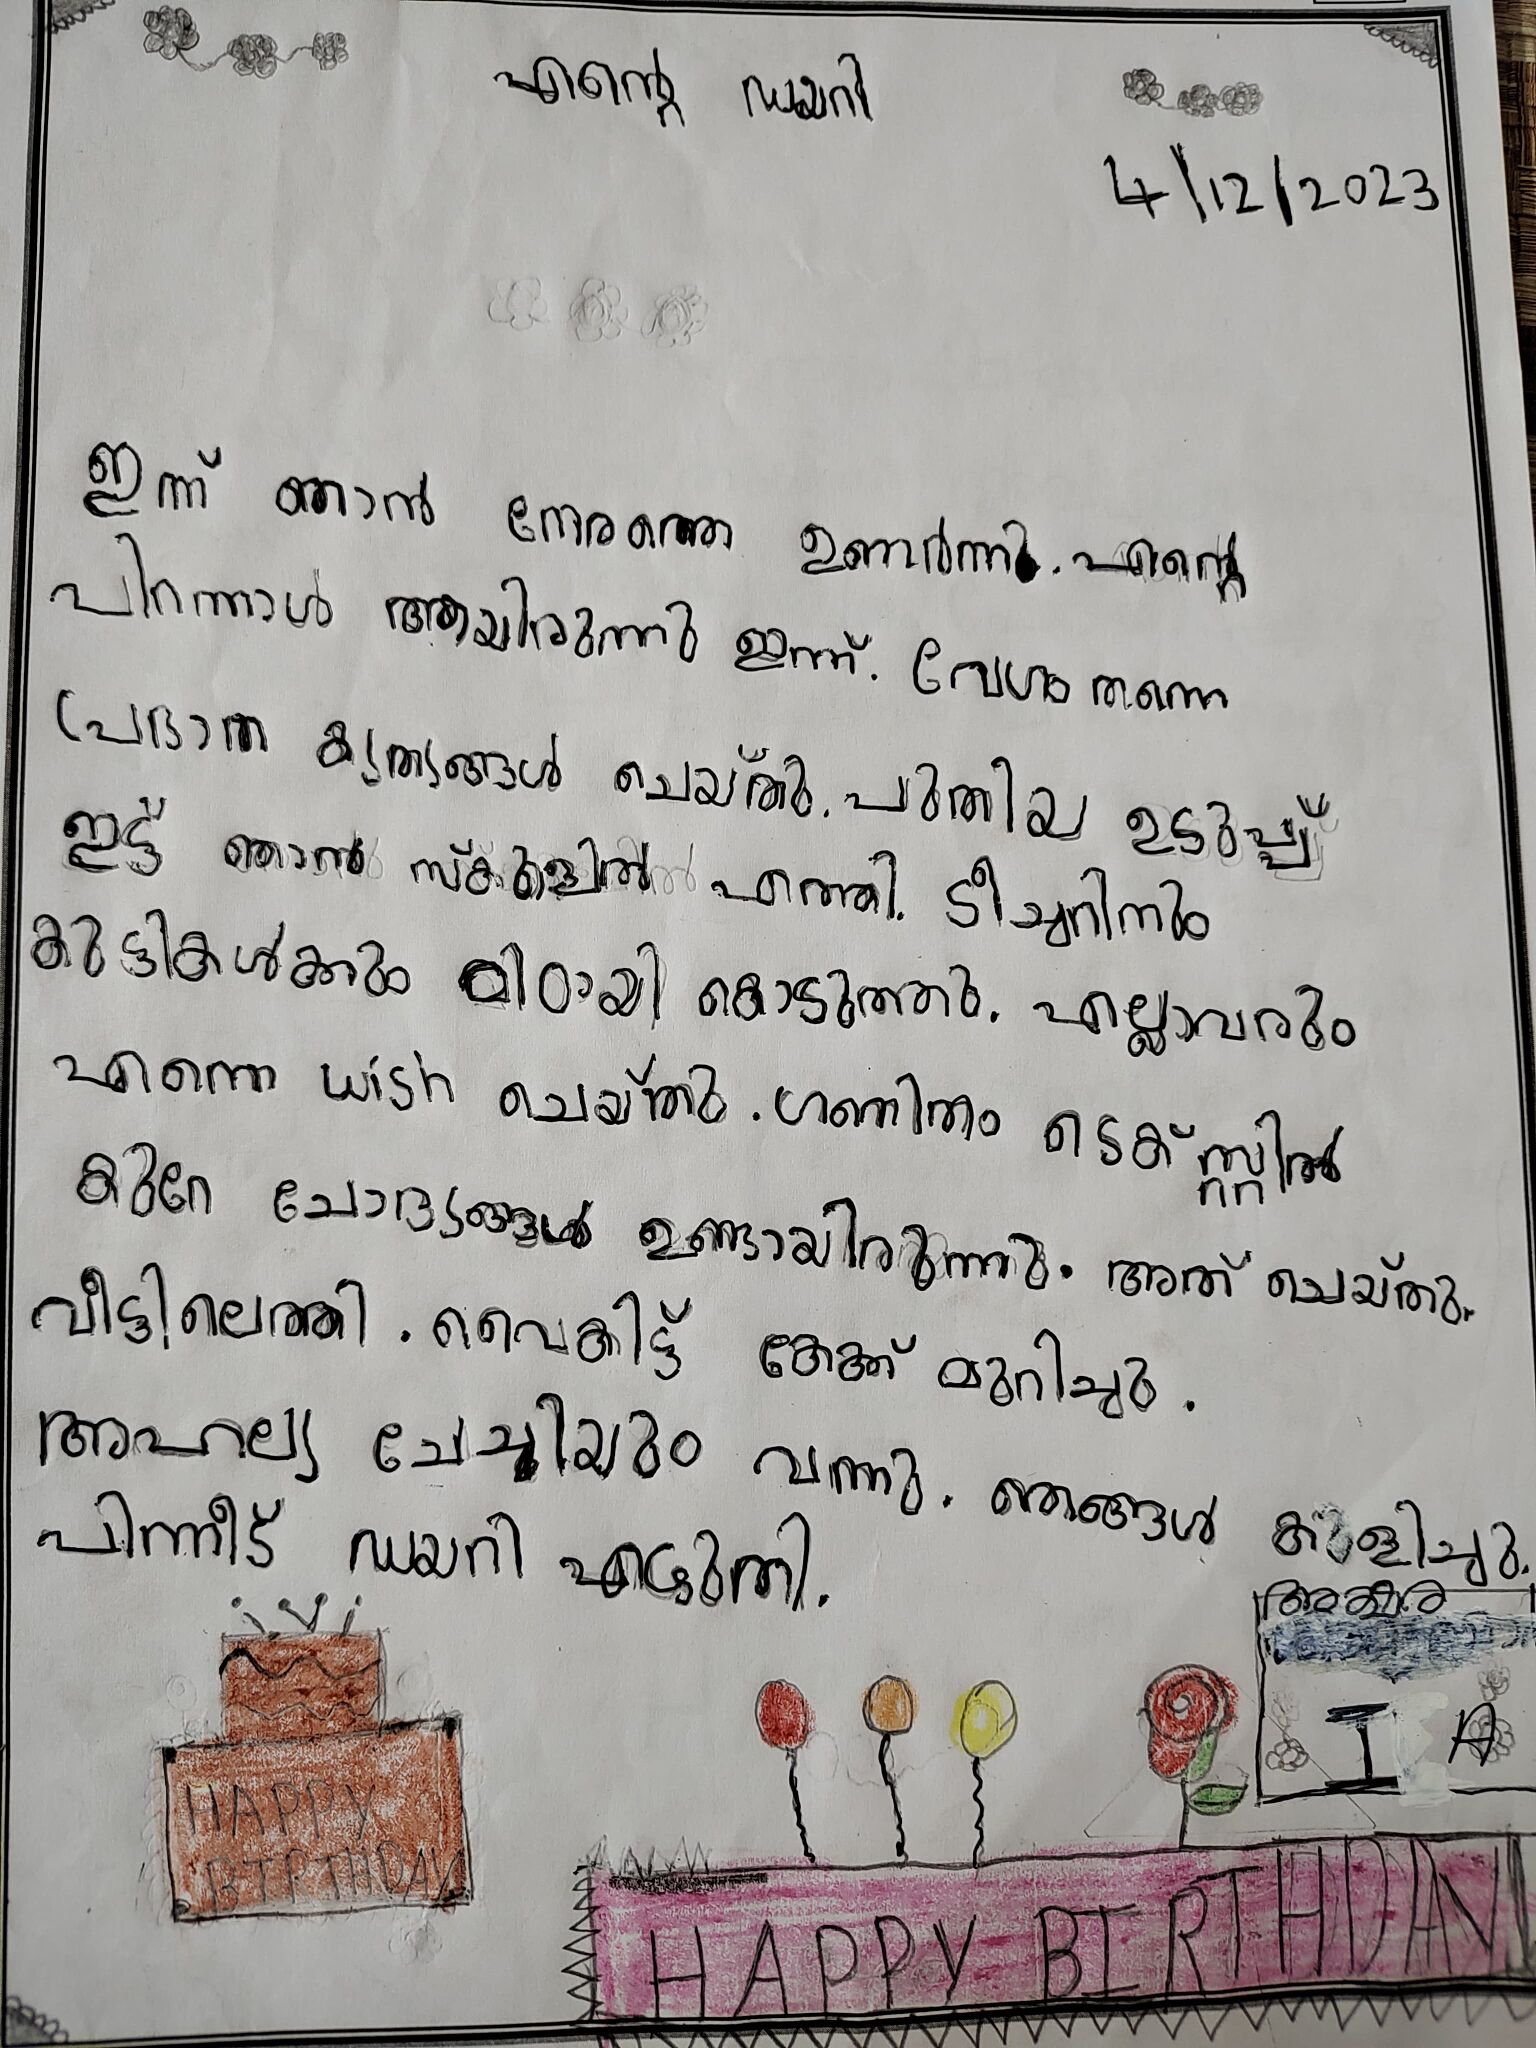 എന്റെ ഡയറി
4/12/2023
ഇന്ന് ഞാൻ നേരത്തെ ഉണർന്നു. എന്റെ
പിറന്നാൾ ആയിരുന്നു ഇന്ന്. വേഗം തന്നെ
പ്രഭാത കൃത്യങ്ങൾ ചെയ്തു. പുതിയ ഉടുപ്പ്
ഇട്ട് ഞാൻ സ്കൂളിൽ എത്തി. ടീച്ചറിനും
കുട്ടികൾക്കും മിഠായി കൊടുത്തു. എല്ലാവരും
എന്നെ wish ചെയ്തു. ഗണിതം ടെക്സ്റ്റിൽ
കുറേ ചോദ്യങ്ങൾ ഉണ്ടായിരുന്നു. അത് ചെയ്തു.
വീട്ടിലെത്തി. വൈകിട്ട് കേക്ക് മുറിച്ചു.
അഹല്യ ചേച്ചിയും വന്നു. ഞങ്ങൾ കളിച്ചു.
പിന്നീട് ഡയറി എഴുതി.
അക്ഷര
I A
HAPPY
BIRTHDAY
HAPPY BIRTHDAY